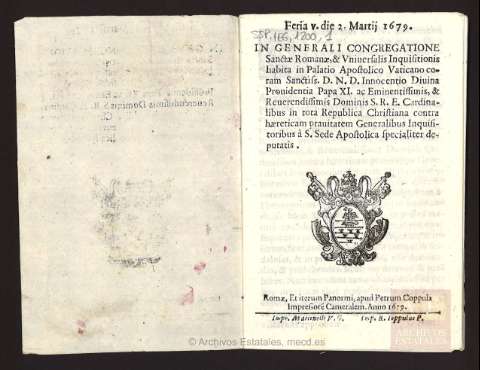 Feria v. die 2. Martij 1679.
SSP, LEG, 1200, 1
IN GENERALI CONGREGATIONE
Sanctæ Romanæ, & Vniuersalis Inquisitionis
habita in Palatio Apostolico Vaticano co-
ram Sanctiss. D. N. D. Innocentio Diuina
Prouidentia Papa XI. ac Eminentissimis, &
Reuerendissimis Dominis S. R. E. Cardina-
libus in tota Republica Christiana contra
hæreticam prauitatem Generalibus Inquisi-
toribus à S. Sede Apostolica specialiter de-
putatis.
Romæ, Et iterum Panormi, apud Petrum Coppula
Impressorē Cameralem. Anno 1679.
Impr. Martinelli V. G. Imp. R. Ioppulus P.
ARCHIVOS
ESTATALES
© Archivos Estatales, mecd.es